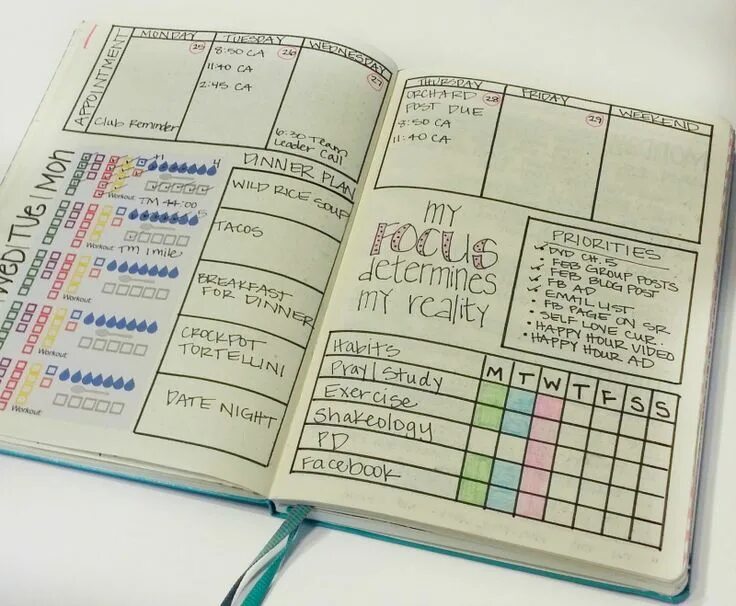 APPOINTMENT
MONDAY
25
Club Reminder
TUESDAY
26
8:50 CA
11:40 CA
2:45 CA
WEDNESDAY
27
6:30 Team
Leader Call
Wed|Tue|Mon
4
Workout TM 44:00
5
Workout TM 1mile
Workout
Workout
Workout
DINNER PLAN
WILD RICE SOUP
TACOS
BREAKFAST
FOR DINNER
CROCKPOT
TORTELLINI
DATE NIGHT
THURSDAY
28
ORCHARD
POST DUE
8:50 CA
11:40 CA
FRIDAY
29
WEEKEND
my
FOCUS
determines
my reality
PRIORITIES
DVD CH. 5
FEB GROUP POSTS
FEB BLOG POST
FB AD
EMAIL LIST
FB PAGE ON SR.
SELF LOVE CUR.
HAPPY HOUR VIDEO
HAPPY HOUR AD
Habits M T W T F S S
Pray|Study
Exercise
Shakeology
PD
Facebook